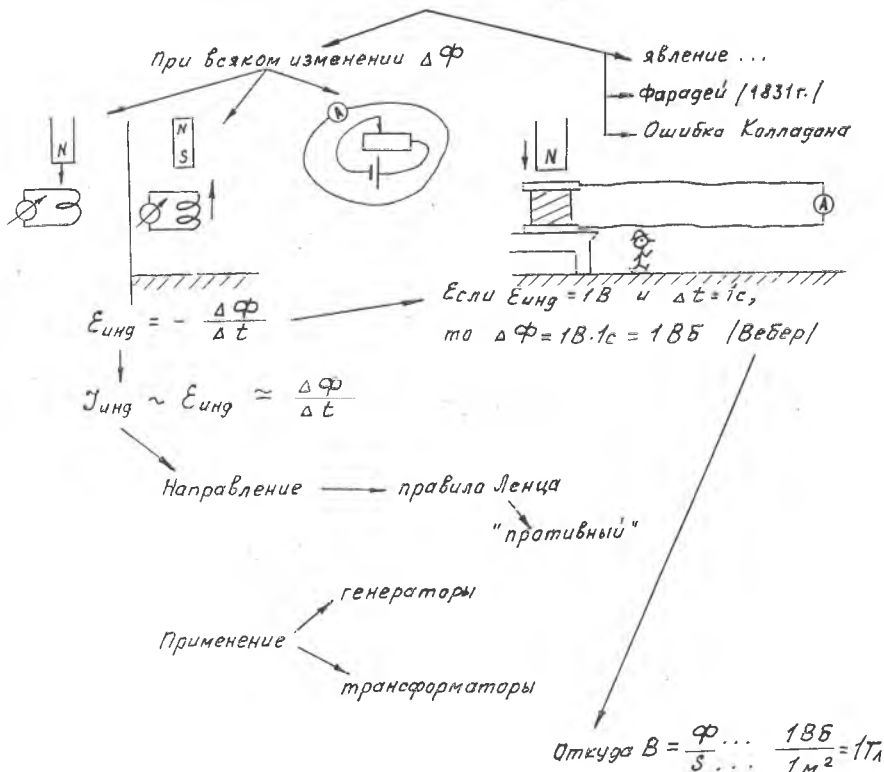 При всяком изменении ΔФ
явление ...
Фарадей /1831г./
Ошибка Колладона
N
N
S
A
N
A
Ɛинд = - ΔФ/Δt
Если Ɛинд = 1В и Δt = 1с,
то ΔФ = 1В·1с = 1ВБ /Вебер/
Јинд ~ Ɛинд ≃ ΔФ/Δt
Направление
правило Ленца
"противный"
генераторы
Применение
трансформаторы
Откуда В = Ф/S ... ... 1ВБ/1м² = 1Тл